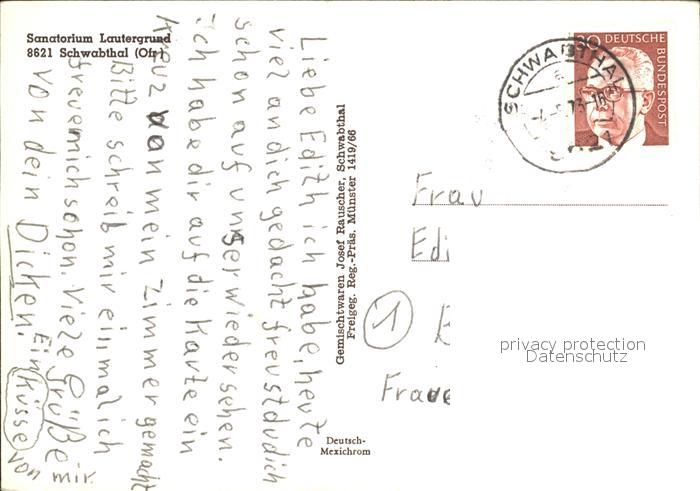 Sanatorium Lautergrund
8621 Schwabthal (Ofr.)
Liebe Edith ich habe, heute
viel an dich gedacht freust du dich
schon auf unser wiedersehen.
Ich habe dir auf die Karte ein
Kreuz von mein Zimmer gemacht
Bitte schreib mir einmal ich
freue mich schon. Viele Grüße
von dein Dicken.
Ein
küsse
von mir.
Gemischtwaren Josef Rauscher, Schwabthal
Freigeg. Reg.-Präs. Münster 1419/66
Deutsch-
Mexichrom
30 DEUTSCHE
BUNDESPOST
SCHWABTHAL
Frau
Edi
1
Fraue
privacy protection
Datenschutz